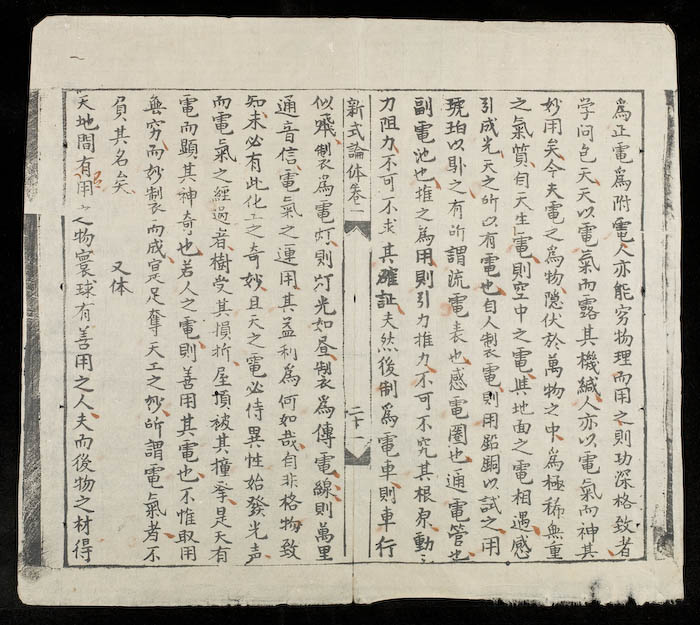 爲正電爲附電人亦能穷物理而用之則功深格致者
学问包天天以電氣而露其機緘人亦以電氣而神其
妙用矣今夫電之爲物隱伏於萬物之中爲極稀無重
之氣質自天生電則空中之電與地面之電相遇感
引成光天之所以有電也自人制電則用鉛銅以試之用
琥珀以卧之有所謂流電表也感電圈也通電管也
副電池也推之爲用則引力推力不可不究其根原動之
力阻力不可不求其確証夫然後制爲電車則車行
新式論体卷一
二十一
似飛制爲電灯則灯光如昼制爲傳電線則萬里
通音信電氣之運用其益利爲何如哉自非格物致
知未必有此化工之奇妙且天之電必待異性始發光声
而電氣之經過者樹受其損折屋頂被其撞挐是天有
電而顕其神奇也若人之電則善用其電也不惟取用
無穷而妙制而成寔足奪天工之妙所謂電氣者不
負其名矣 又体
天地間有用之物寰球有善用之人夫而後物之材得